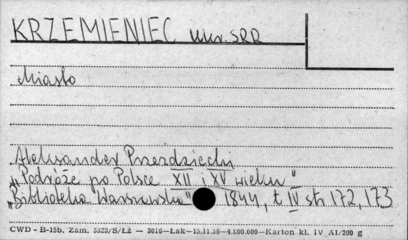 KRZEMIENIEC Ukr. SRR
Miasto
Aleksander Przezdziecki
„Podróże po Polsce XII i XV wieku"
„Biblioteka Warszawska" 1844, t. IV str. 172, 173
CWD - B-15b. Zam. 5323/S/ŁŻ — 3016—Łak—13.11.59—4.000.000—Karton kl. IV A1/200 g